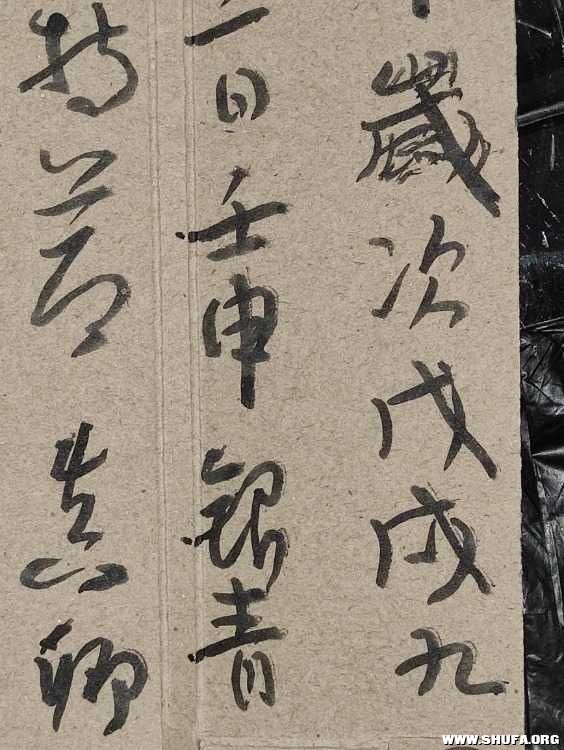 歲次戊戌九
日壬申銀青
持節 真卿
WWW.SHUFA.ORG